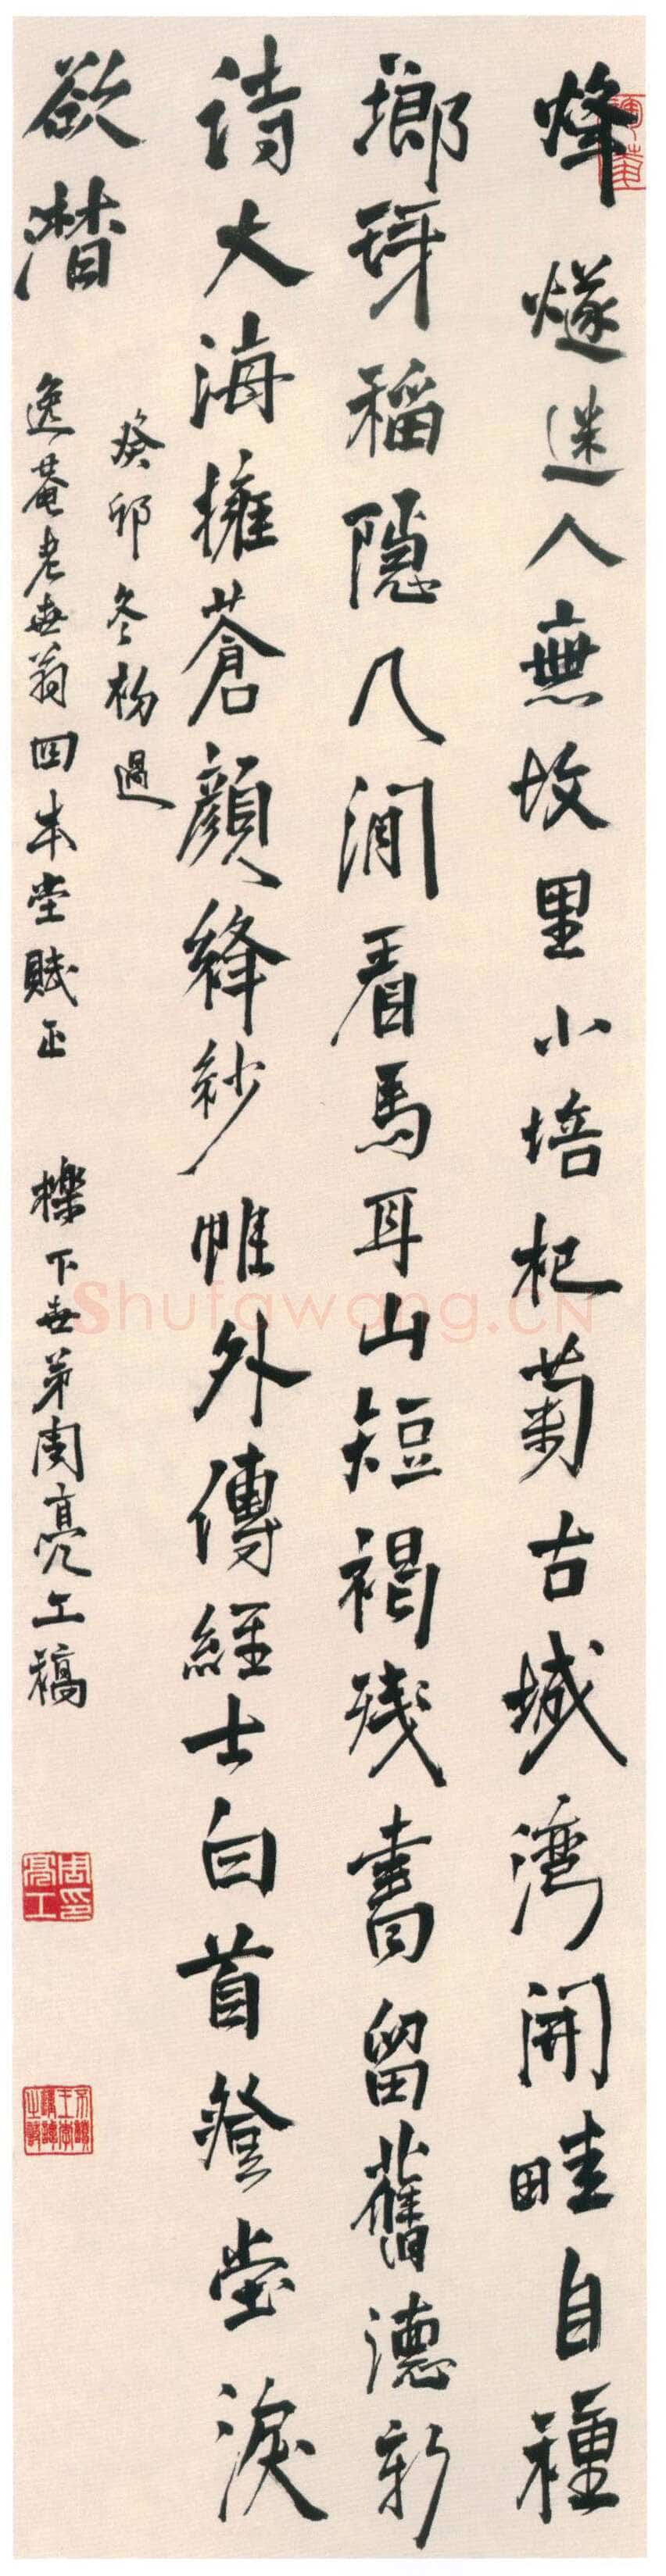 烽燧迷人無故里小培杞菊古城灣開畦自種
瑯琊稻隱几閒看馬耳山短褐殘書留舊德新
詩大海擁蒼顏絳紗帷外傳經士白首登堂淚
欲潸
癸卯冬杪過
逸菴老世翁四本堂賦正
櫟下世弟周亮工稿
周亮工印
Shufawang.CN